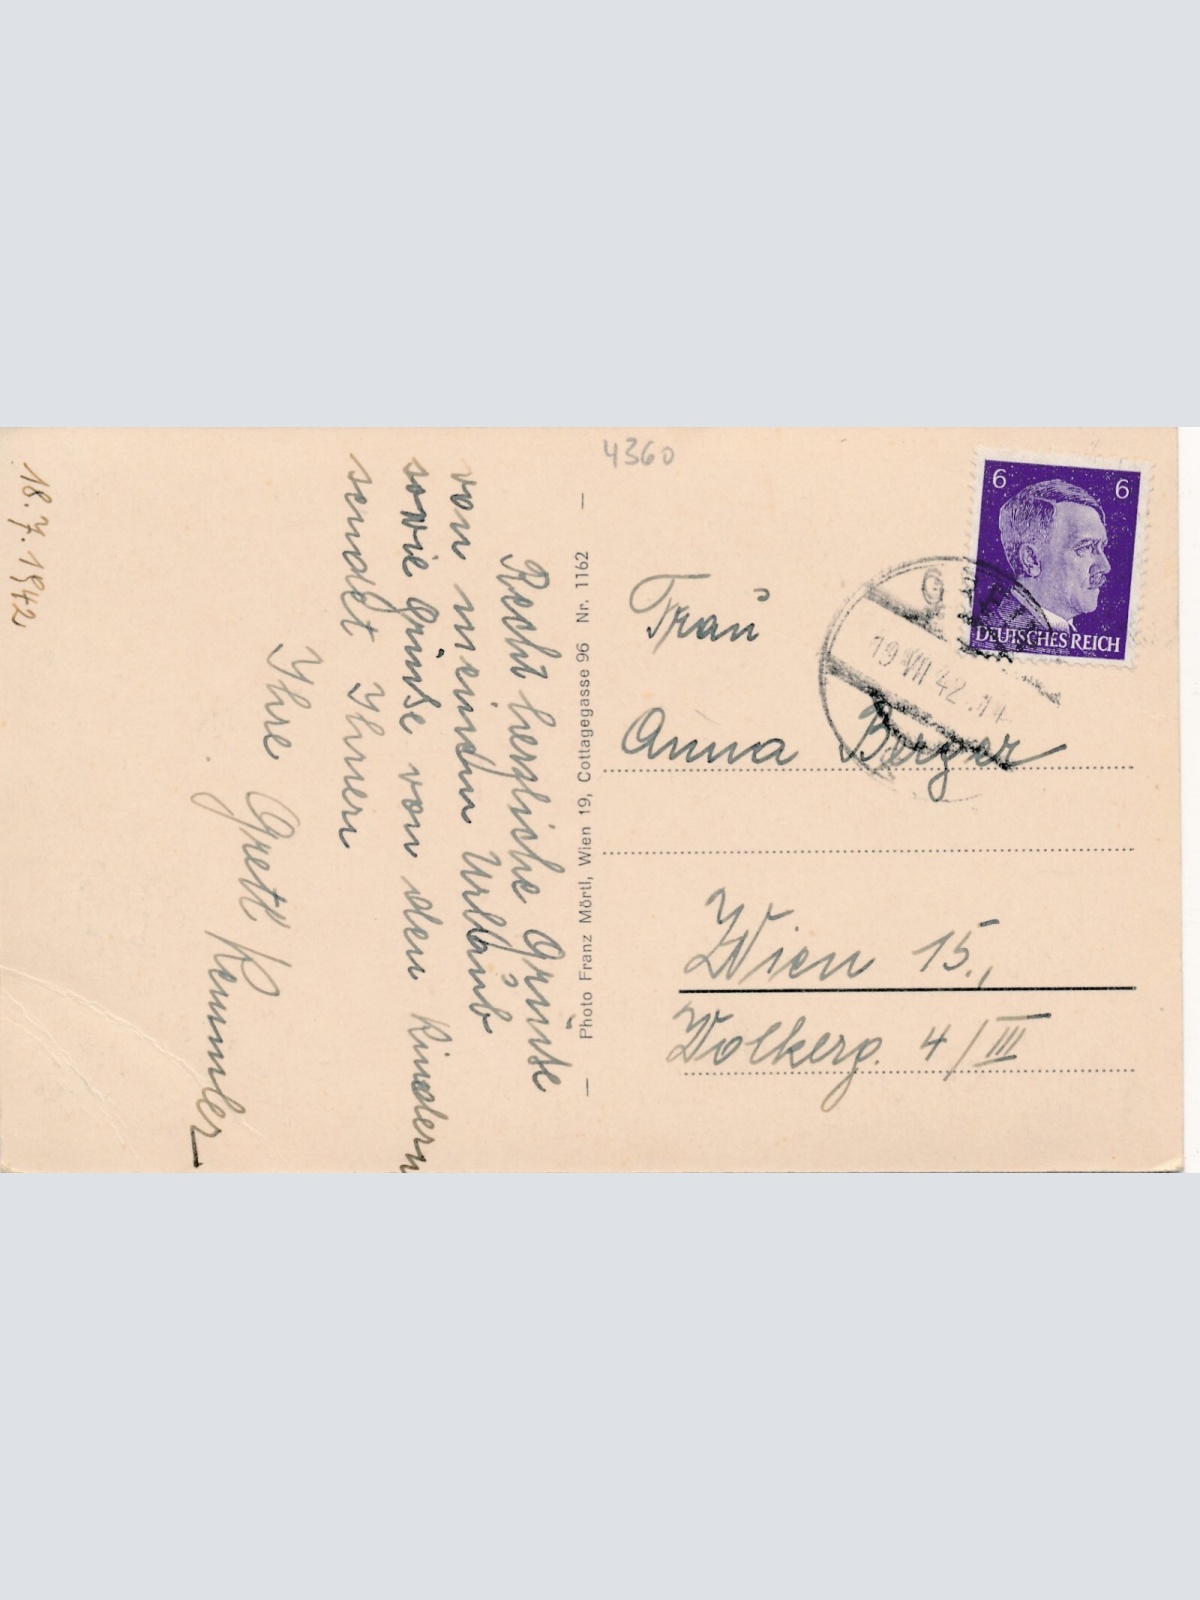 4360
6 6
DEUTSCHES REICH
19 VII 42.14
Frau
Anna Berger
Wien 15.,
Wolkerg. 4/III
— Photo Franz Mörtl, Wien 19, Cottagegasse 96 Nr. 1162 —
Recht herzliche Grüße
von meinem Urlaub
sowie Grüße von den Kindern
sendet Ihnen
Ihre Gretl Kemmler
18.7.1942